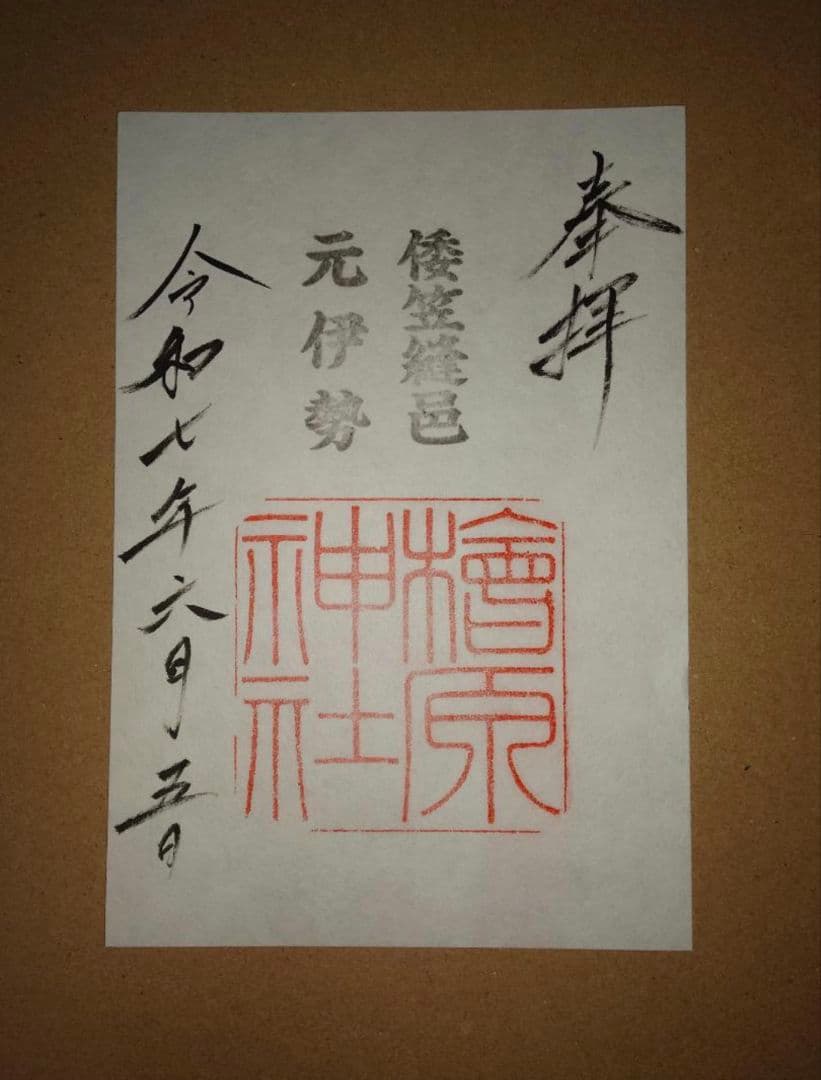 奉拝
倭笠縫邑
元伊勢
檜原
神社
令和七年六月五日